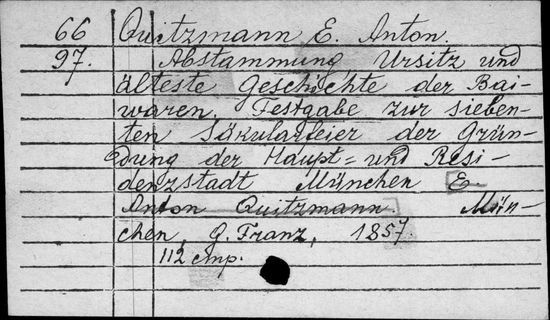 66 Quitzmann E. Anton.
97. Abstammung Ursitz und
älteste Geschichte der Bai-
waren. Festgabe zur sieben-
ten Säkularfeier der Grün-
dung der Haupt= und Resi-
denzstadt München E
Anton Quitzmann. Mün-
chen, G. Franz, 1857.
112 стр.